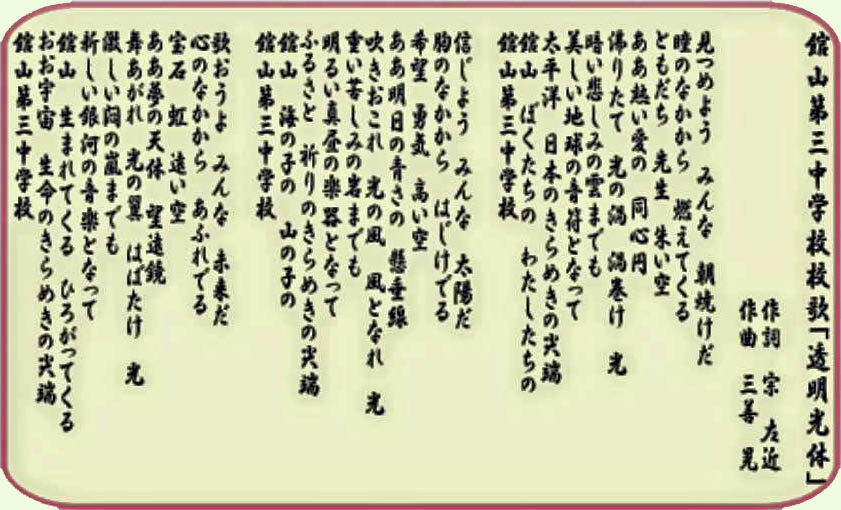 館山第三中学校校歌「透明光体」
作詞 宗 左近
作曲 三善 晃
見つめよう みんな 朝焼けだ
瞳のなかから 燃えてくる
ともだち 先生 朱い空
ああ熱い愛の 同心円
沸りたて 光の渦 渦巻け 光
暗い悲しみの雲までも
美しい地球の音符となって
太平洋 日本のきらめきの尖端
館山 ぼくたちの わたしたちの
館山第三中学校
信じよう みんな 太陽だ
胸のなかから はじけでる
希望 勇気 高い空
ああ明日の青さの 懸垂線
吹きおこれ 光の風 風となれ 光
重い苦しみの岩までも
明るい真昼の楽器となって
ふるさと 祈りのきらめきの尖端
館山 海の子の 山の子の
館山第三中学校
歌おうよ みんな 未来だ
心のなかから あふれでる
宝石 虹 遠い空
ああ夢の天体 望遠鏡
舞あがれ 光の翼 はばたけ 光
激しい悶の嵐までも
新しい銀河の音楽となって
館山 生まれてくる ひろがってくる
おお宇宙 生命のきらめきの尖端
館山第三中学校